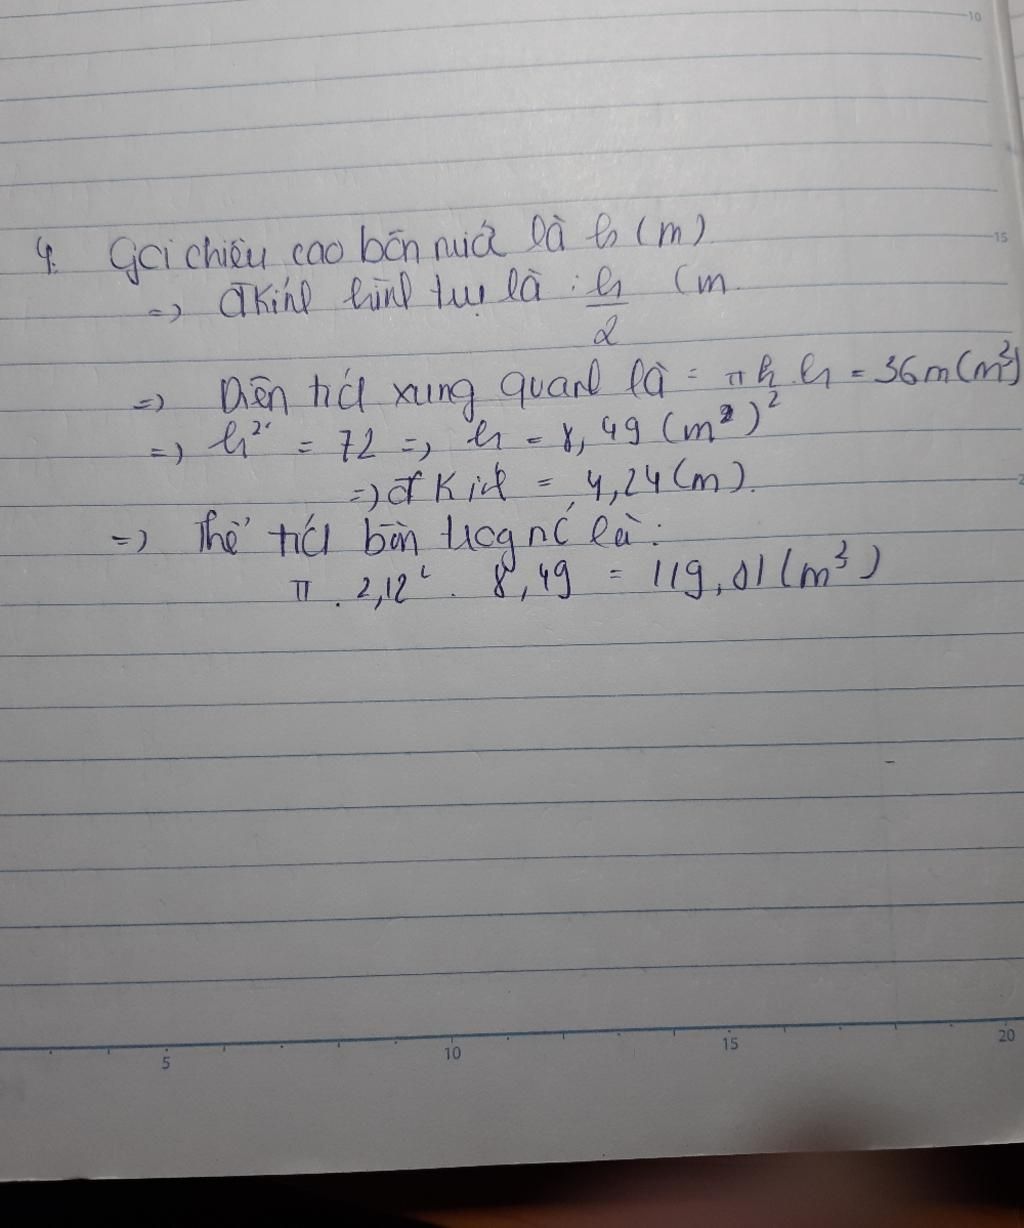 4. Gọi chiều cao bồn nước là h (m)
=> đkính hình trụ là : h/2 (m
=> Diện tích xung quanh là = π h/2 . h = 36π (m²)
=> h² = 72 => h = 8,49 (m²)
=> đkính = 4,24 (m).
=> Thể tích bồn là :
π . 2,12² . 8,49 = 119,81 (m³)
10
15
5
10
15
20